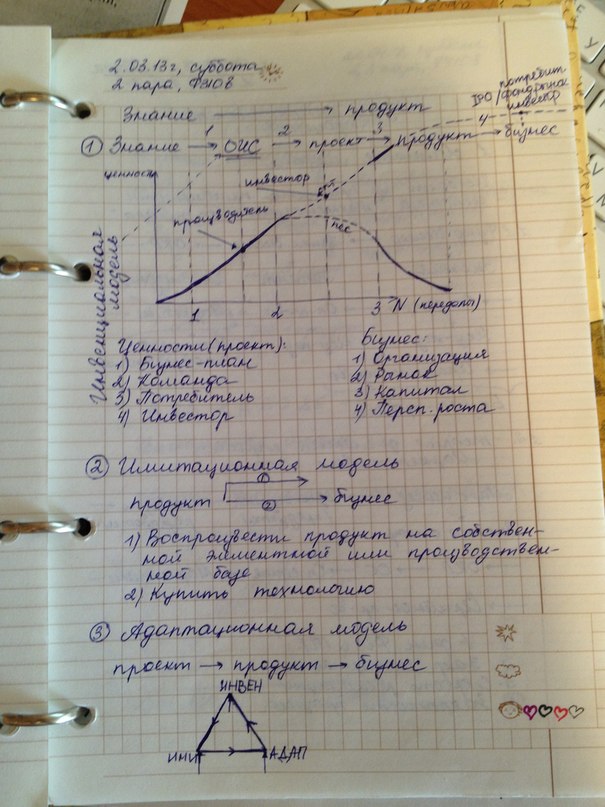 2.03.13г, суббота
2 пара,
Знание → продукт
потребит.
IPO/фондрынок
инвестор
① Знание 1→ ОИС 2→ проект 3→ продукт 4→ бизнес
ценность
инвестор
производитель
пес
Инвенциальная
модель
1 2 3 N (переделы)
Ценности (проект): Бизнес:
1) Бизнес-план 1) Организация
2) Команда 2) Рынок
3) Потребитель 3) Капитал
4) Инвестор 4) Персп. роста
② Имитационная модель
①
продукт → бизнес
②
1) Воспроизвести продукт на собствен-
ной элементной или производствен-
ной базе
2) Купить технологию
③ Адаптационная модель
проект → продукт → бизнес
ИНВЕН
ИМИ АДАП